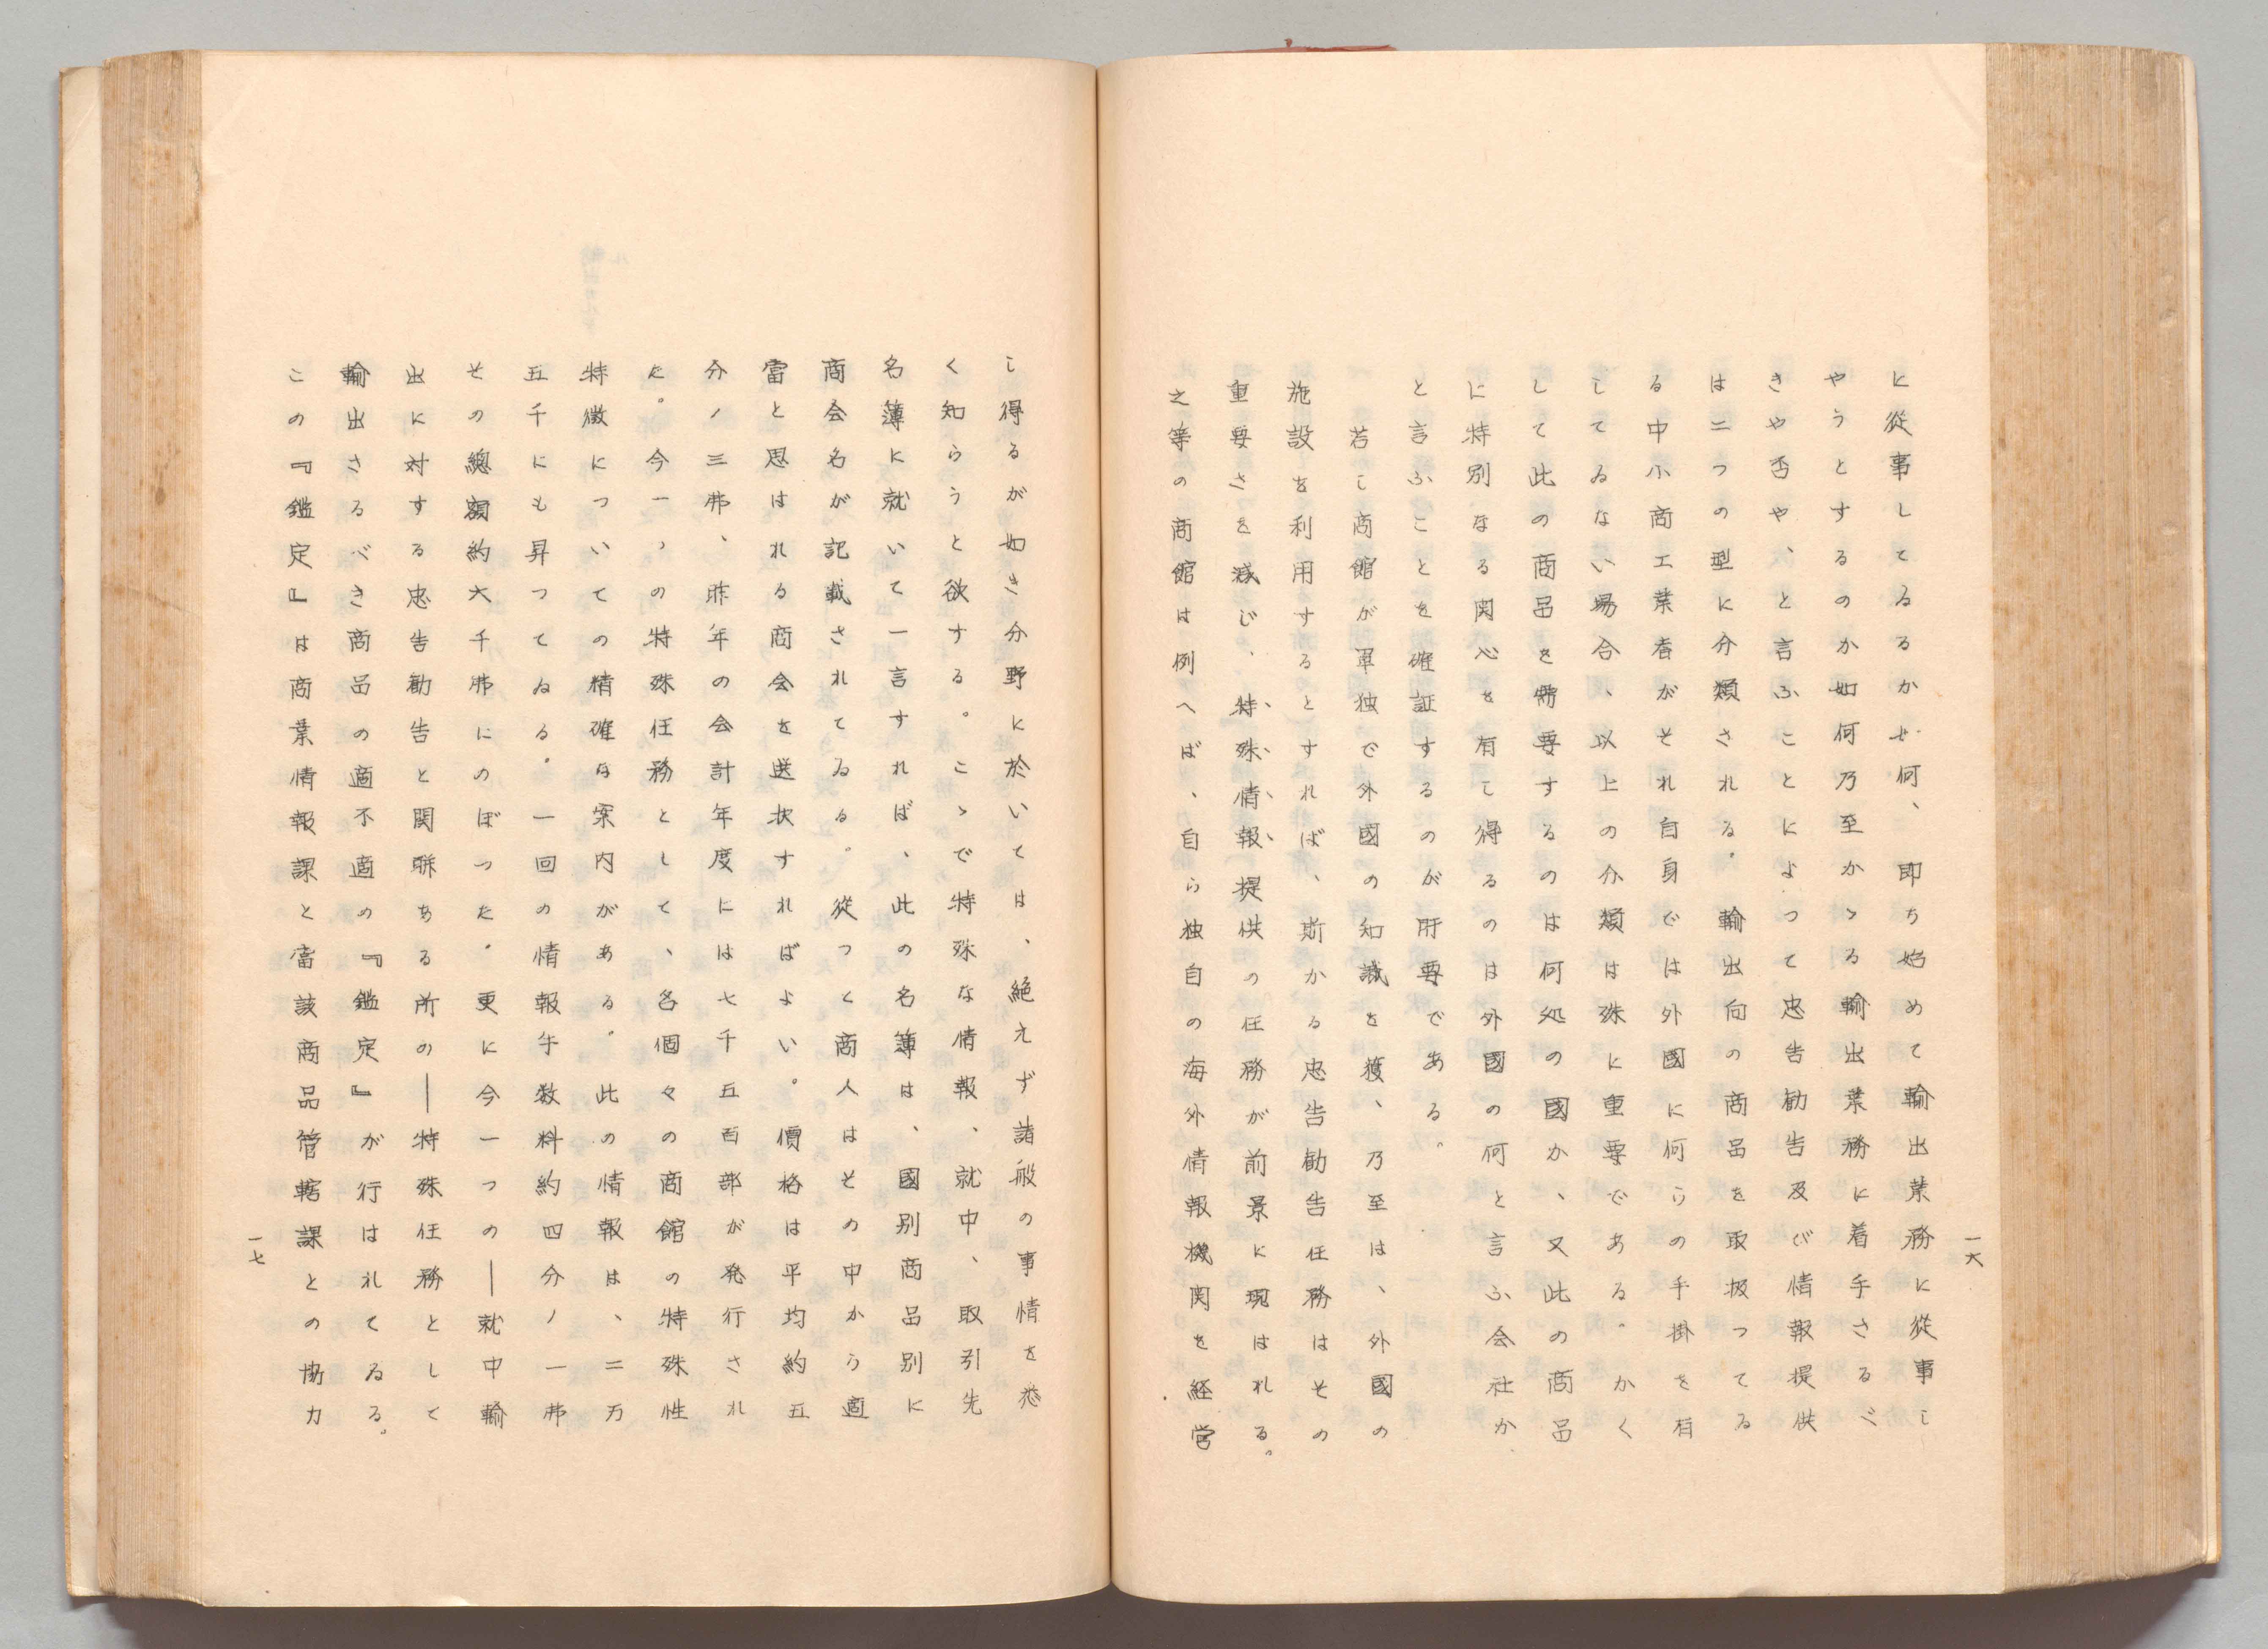 に従事してゐるか如何、即ち始めて輸出業務に従事し
やうとするのか如何乃至かゝる輸出業務に着手さるべ
きや否や、と言ふことによつて忠告勧告及び情報提供
は二つの型に分類される。輸出向の商品を取扱つてゐ
る中小商工業者がそれ自身では外國に何らの手掛を有
してゐない場合、以上の分類は殊に重要である。かく
して此の商品を需要するのは何処の國か、又此の商品
に特別なる関心を有し得るのは外國の何と言ふ会社か
と言ふことを確証するのが肝要である。
若し商館が單独で外國の知識を獲、乃至は、外國の
施設を利用するとすれば、斯かる忠告勧告任務はその
重要さを減じ、特殊情報提供の任務が前景に現はれる。
之等の商館は例へば、自ら独自の海外情報機関を経営
一六
し得るが如き分野に於いては、絶えず諸般の事情を悉
く知らうと欲する。こゝで特殊な情報、就中、取引先
名簿に就いて一言すれば、此の名簿は、國別商品別に
商会名が記載されてゐる。従つて商人はその中から適
當と思はれる商会を送状すればよい。價格は平均約五
分ノ三弗、昨年の会計年度には七千五百部が発行され
た。今一つの特殊任務として、各個々の商館の特殊性
特徴についての精確な案内がある。此の情報は、二万
五千にも昇つてゐる。一回の情報手数料約四分ノ一弗
その總額約六千弗にのぼつた。更に今一つの―就中輸
出に対する忠告勧告と関聯ある所の―特殊任務として
輸出さるべき商品の適不適の『鑑定』が行はれてゐる。
この『鑑定』は商業情報課と當該商品管轄課との協力
一七